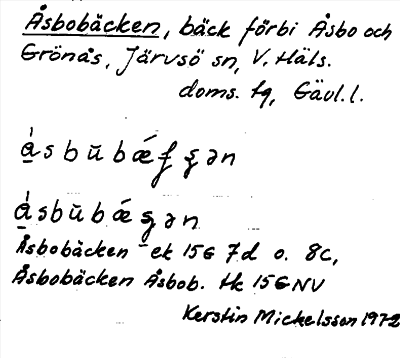 Åsbobäcken, bäck förbi Åsbo och
Grönås, Järvsö sn, V. Häls.
doms. tg, Gävl.l.
Åsbobäcken ek 15G 7d o. 8c,
Åsbobäcken Åsbob. tk 15G NV
Kerstin Mickelsson 1972